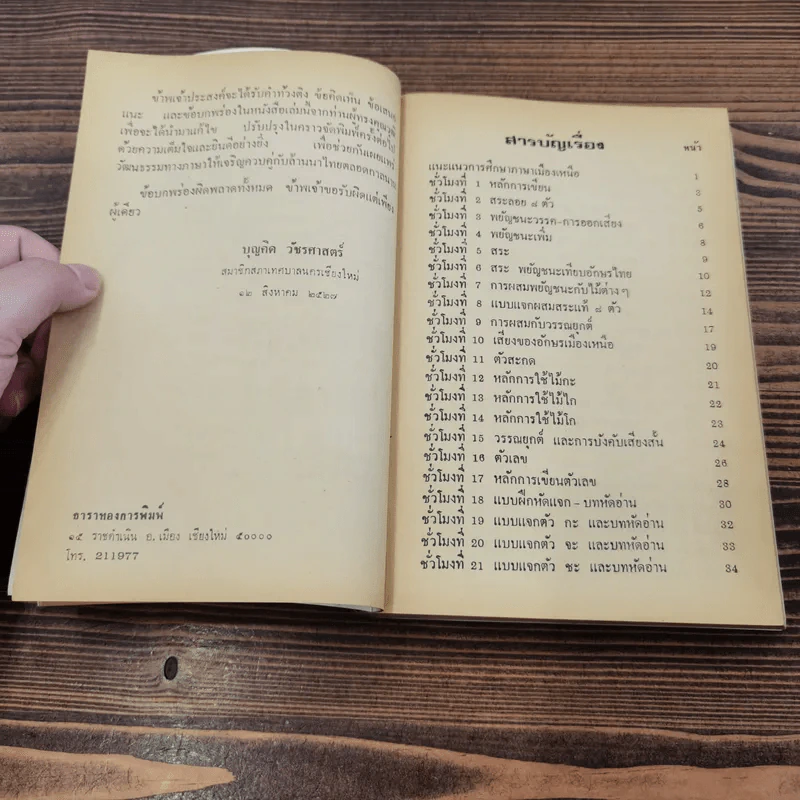 ข้าพเจ้าประสงค์จะได้รับคำท้วงติง ข้อคิดเห็น ข้อเสนอ
แนะ และข้อบกพร่องในหนังสือเล่มนี้จากท่านผู้ทรงคุณวุฒิ
เพื่อจะได้นำมาแก้ไข ปรับปรุงในคราวจัดพิมพ์ครั้งต่อไป
ด้วยความเต็มใจและยินดีอย่างยิ่ง เพื่อช่วยกันเผยแพร่
วัฒนธรรมทางภาษาให้เจริญควบคู่กับล้านนาไทยตลอดกาลนาน
ข้อบกพร่องผิดพลาดทั้งหมด ข้าพเจ้าขอรับผิดแต่เพียง
ผู้เดียว
บุญคิด วัชรศาสตร์
สมาชิกสภาเทศบาลนครเชียงใหม่
๑๒ สิงหาคม ๒๕๒๗
ธาราทองการพิมพ์
๑๕ ราชดำเนิน อ.เมือง เชียงใหม่ ๕๐๐๐๐
โทร. 211977
สารบัญเรื่อง หน้า
แนะแนวการศึกษาภาษาเมืองเหนือ 1
ชั่วโมงที่ 1 หลักการเขียน 3
ชั่วโมงที่ 2 สระลอย ๘ ตัว 5
ชั่วโมงที่ 3 พยัญชนะวรรค-การออกเสียง 6
ชั่วโมงที่ 4 พยัญชนะเพิ่ม 8
ชั่วโมงที่ 5 สระ 9
ชั่วโมงที่ 6 สระ พยัญชนะเทียบอักษรไทย 10
ชั่วโมงที่ 7 การผสมพยัญชนะกับไม้ต่างๆ 12
ชั่วโมงที่ 8 แบบแจกผสมสระแท้ ๘ ตัว 14
ชั่วโมงที่ 9 การผสมกับวรรณยุกต์ 17
ชั่วโมงที่ 10 เสียงของอักษรเมืองเหนือ 19
ชั่วโมงที่ 11 ตัวสะกด 20
ชั่วโมงที่ 12 หลักการใช้ไม้กะ 21
ชั่วโมงที่ 13 หลักการใช้ไม้ไก 22
ชั่วโมงที่ 14 หลักการใช้ไม้โก 23
ชั่วโมงที่ 15 วรรณยุกต์ และการบังคับเสียงสั้น 24
ชั่วโมงที่ 16 ตัวเลข 26
ชั่วโมงที่ 17 หลักการเขียนตัวเลข 28
ชั่วโมงที่ 18 แบบฝึกหัดแจก - บทหัดอ่าน 30
ชั่วโมงที่ 19 แบบแจกตัว กะ และบทหัดอ่าน 32
ชั่วโมงที่ 20 แบบแจกตัว จะ และบทหัดอ่าน 33
ชั่วโมงที่ 21 แบบแจกตัว ชะ และบทหัดอ่าน 34